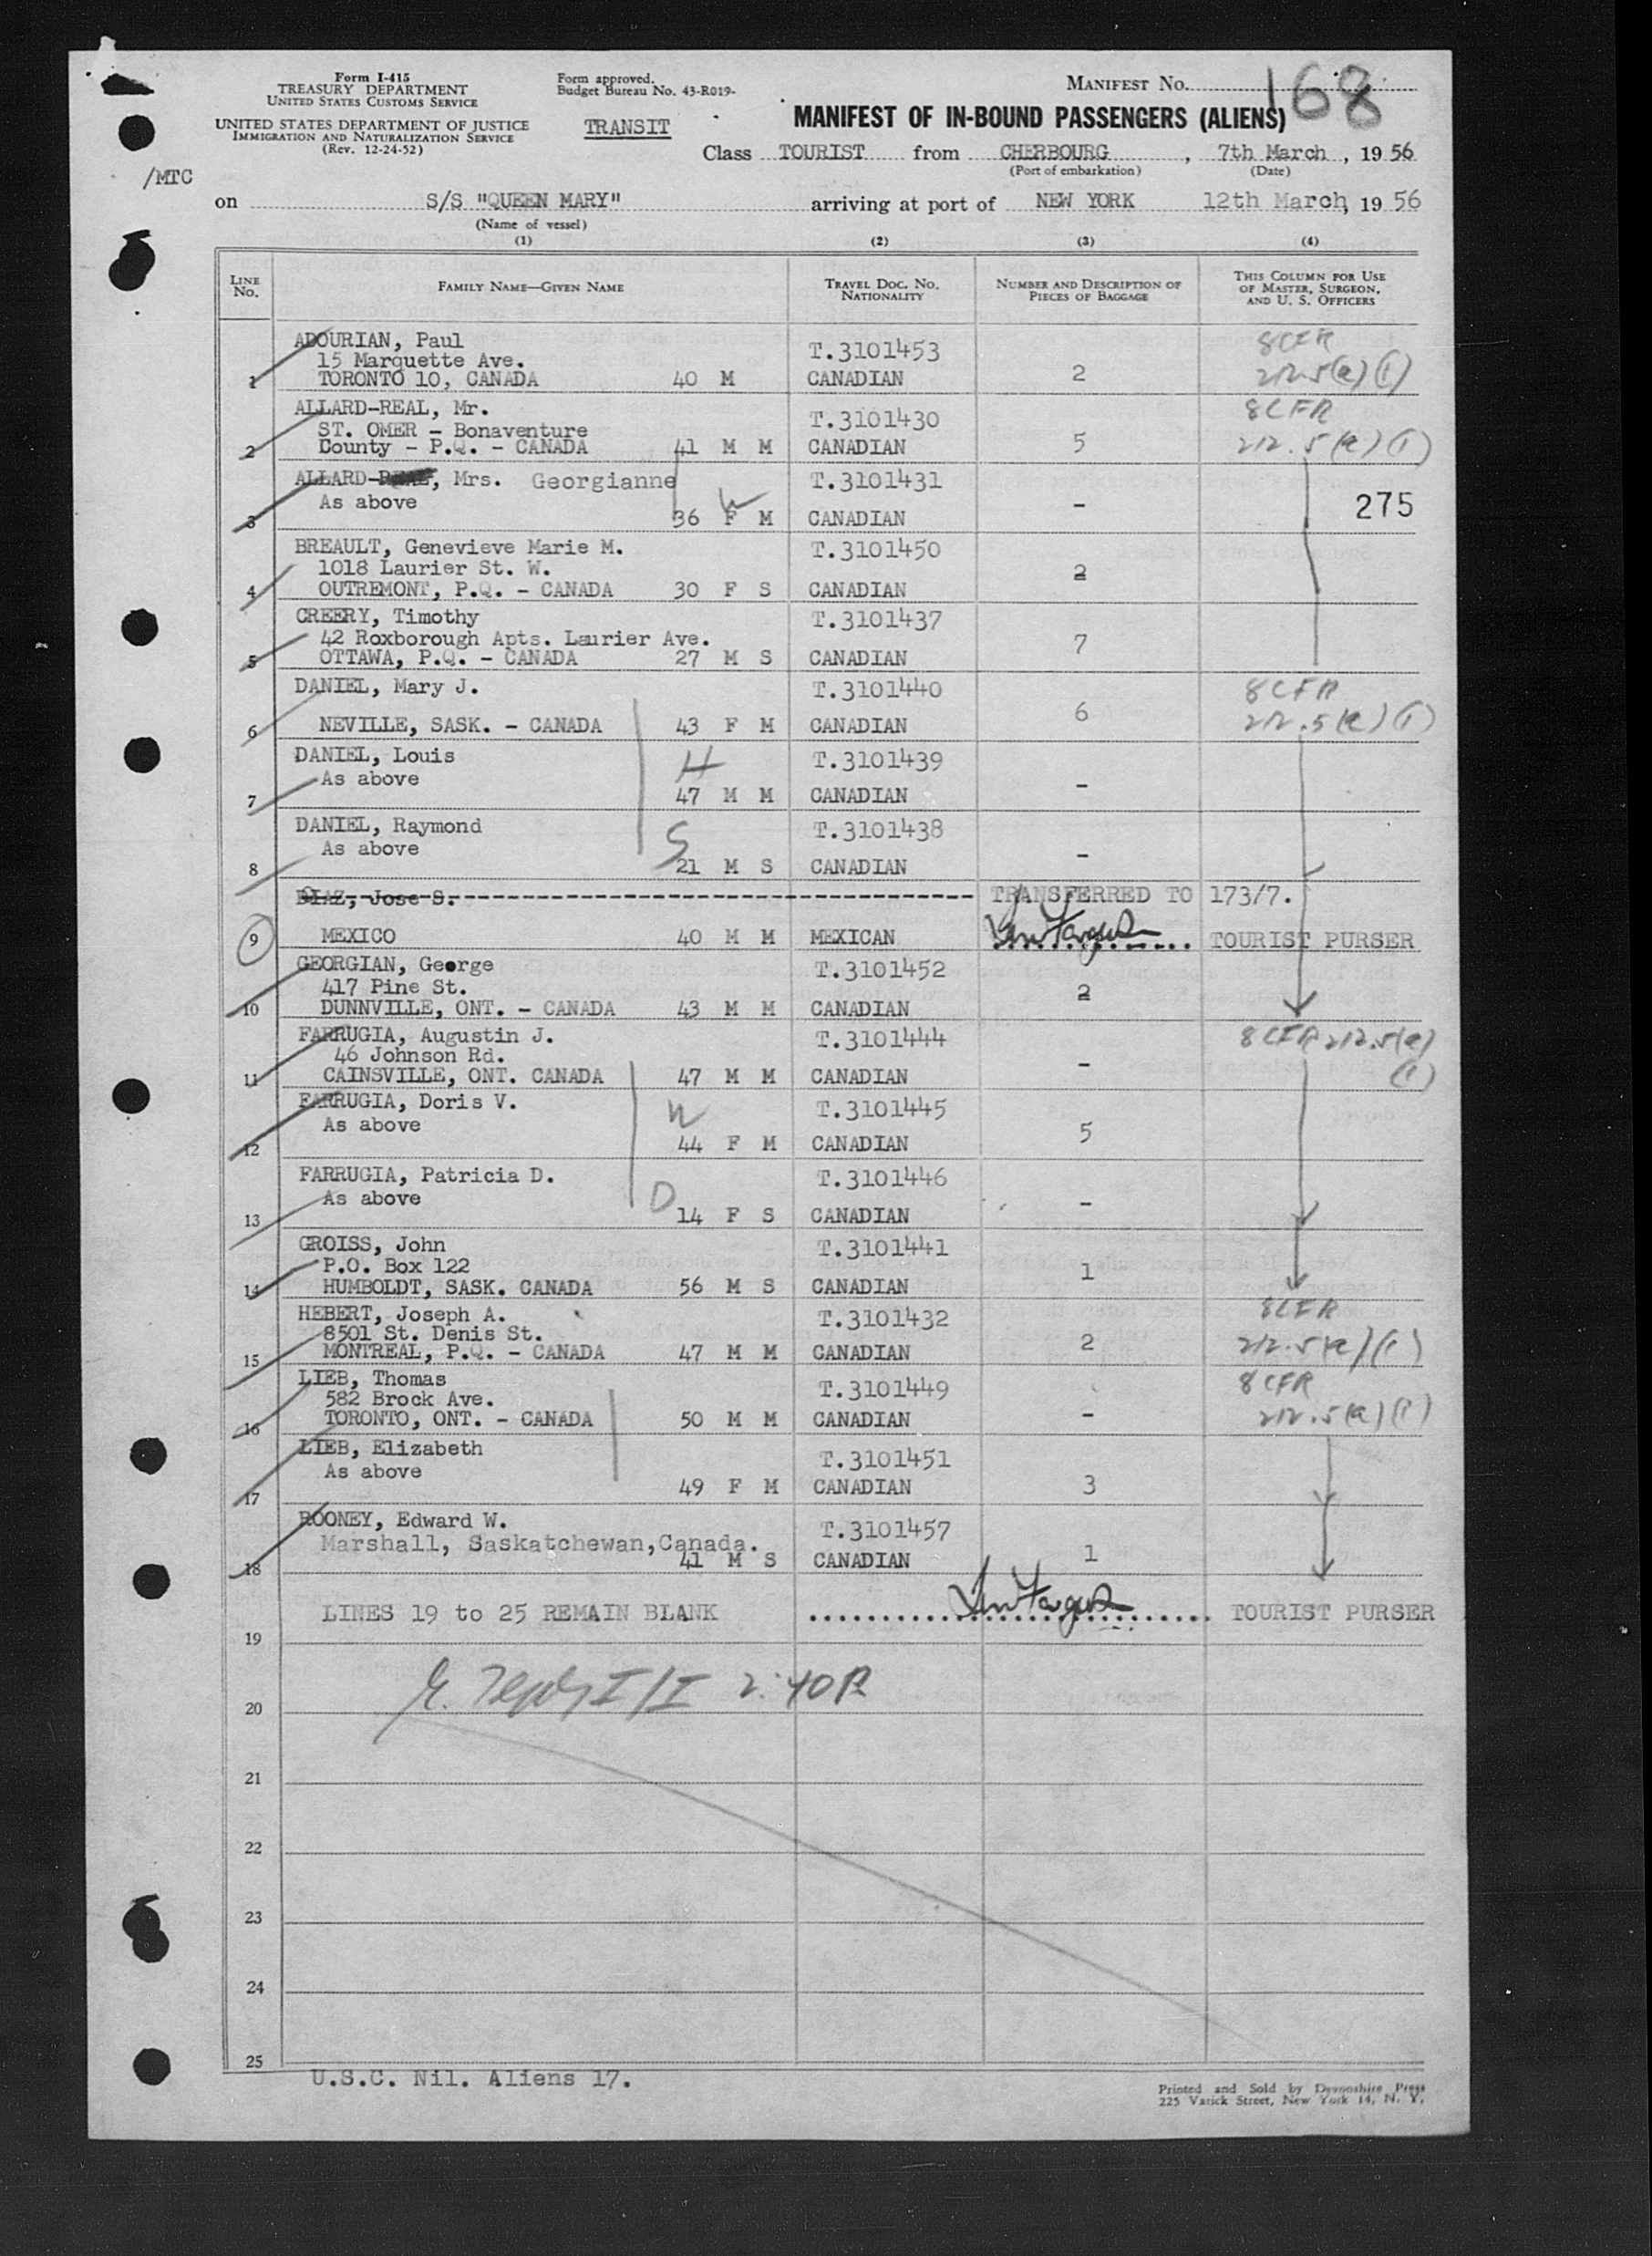 Form I-415
TREASURY DEPARTMENT
UNITED STATES CUSTOMS SERVICE
UNITED STATES DEPARTMENT OF JUSTICE
IMMIGRATION AND NATURALIZATION SERVICE
(Rev. 12-24-52)
/MTC
Form approved.
Budget Bureau No. 43-R019-
TRANSIT
MANIFEST NO. 168
MANIFEST OF IN-BOUND PASSENGERS (ALIENS)
Class TOURIST from CHERBOURG, 7th March, 19 56
(Port of embarkation) (Date)
on S/S "QUEEN MARY" arriving at port of NEW YORK 12th March, 19 56
(Name of vessel)
(1) (2) (3) (4)
LINE NO. FAMILY NAME—GIVEN NAME TRAVEL DOC. NO. NATIONALITY NUMBER AND DESCRIPTION OF PIECES OF BAGGAGE THIS COLUMN FOR USE OF MASTER, SURGEON, AND U. S. OFFICERS
ADOURIAN, Paul T.3101453 8CFR
15 Marquette Ave.
1 TORONTO 10, CANADA 40 M CANADIAN 2 212.5(a)(1)
ALLARD-REAL, Mr. T.3101430 8CFR
ST. OMER - Bonaventure
2 County - P.Q. - CANADA 41 M M CANADIAN 5 212.5(a)(1)
ALLARD-REAL, Mrs. Georgianne T.3101431
As above W
3 36 F M CANADIAN - 275
BREAULT, Genevieve Marie M. T.3101450
1018 Laurier St. W.
4 OUTREMONT, P.Q. - CANADA 30 F S CANADIAN 2
CREERY, Timothy T.3101437
42 Roxborough Apts. Laurier Ave.
5 OTTAWA, P.Q. - CANADA 27 M S CANADIAN 7
DANIEL, Mary J. T.3101440 8CFR
6 NEVILLE, SASK. - CANADA 43 F M CANADIAN 6 212.5(a)(1)
DANIEL, Louis T.3101439
As above H
7 47 M M CANADIAN -
DANIEL, Raymond T.3101438
As above S
8 21 M S CANADIAN -
DIAZ, Jose S. TRANSFERRED TO 173/7.
9 MEXICO 40 M M MEXICAN TOURIST PURSER
GEORGIAN, George T.3101452
417 Pine St.
10 DUNNVILLE, ONT. - CANADA 43 M M CANADIAN 2
FARRUGIA, Augustin J. T.3101444 8CFR 212.5(a)
46 Johnson Rd.
11 CAINSVILLE, ONT. CANADA 47 M M CANADIAN - (1)
FARRUGIA, Doris V. T.3101445
As above W
12 44 F M CANADIAN 5
FARRUGIA, Patricia D. T.3101446
As above D
13 14 F S CANADIAN -
GROISS, John T.3101441
P.O. Box 122
14 HUMBOLDT, SASK. CANADA 56 M S CANADIAN 1
HEBERT, Joseph A. T.3101432 8CFR
8501 St. Denis St.
15 MONTREAL, P.Q. - CANADA 47 M M CANADIAN 2 212.5(a)(1)
LIEB, Thomas T.3101449 8CFR
582 Brock Ave.
16 TORONTO, ONT. - CANADA 50 M M CANADIAN - 212.5(a)(1)
LIEB, Elizabeth T.3101451
As above
17 49 F M CANADIAN 3
ROONEY, Edward W. T.3101457
Marshall, Saskatchewan, Canada.
18 41 M S CANADIAN 1
LINES 19 to 25 REMAIN BLANK TOURIST PURSER
19
20
21
22
23
24
25
U.S.C. Nil. Aliens 17.
Printed and Sold by Devonshire Press
225 Varick Street, New York 14, N. Y.